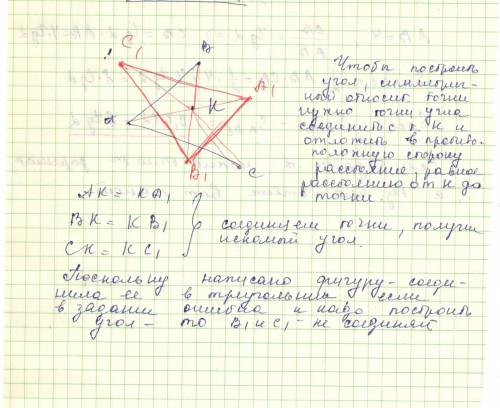 C₁
B
K
A₁
A
B₁
C
Чтобы построить
угол, симметрич-
ный относит. точки
нужно точки угла
соединить с К и
отложить в противо-
положную сторону
расстояние, равное
расстоянию от К до
точки.
АК = КА₁
ВК = КВ₁
СК = КС₁
соединяем точки, получим
искомый угол.
Поскольку написано фигуру - соеди-
нила её в треугольник если
в задании ошибка и надо построить
угол - то В₁ и С₁ - не соединяй